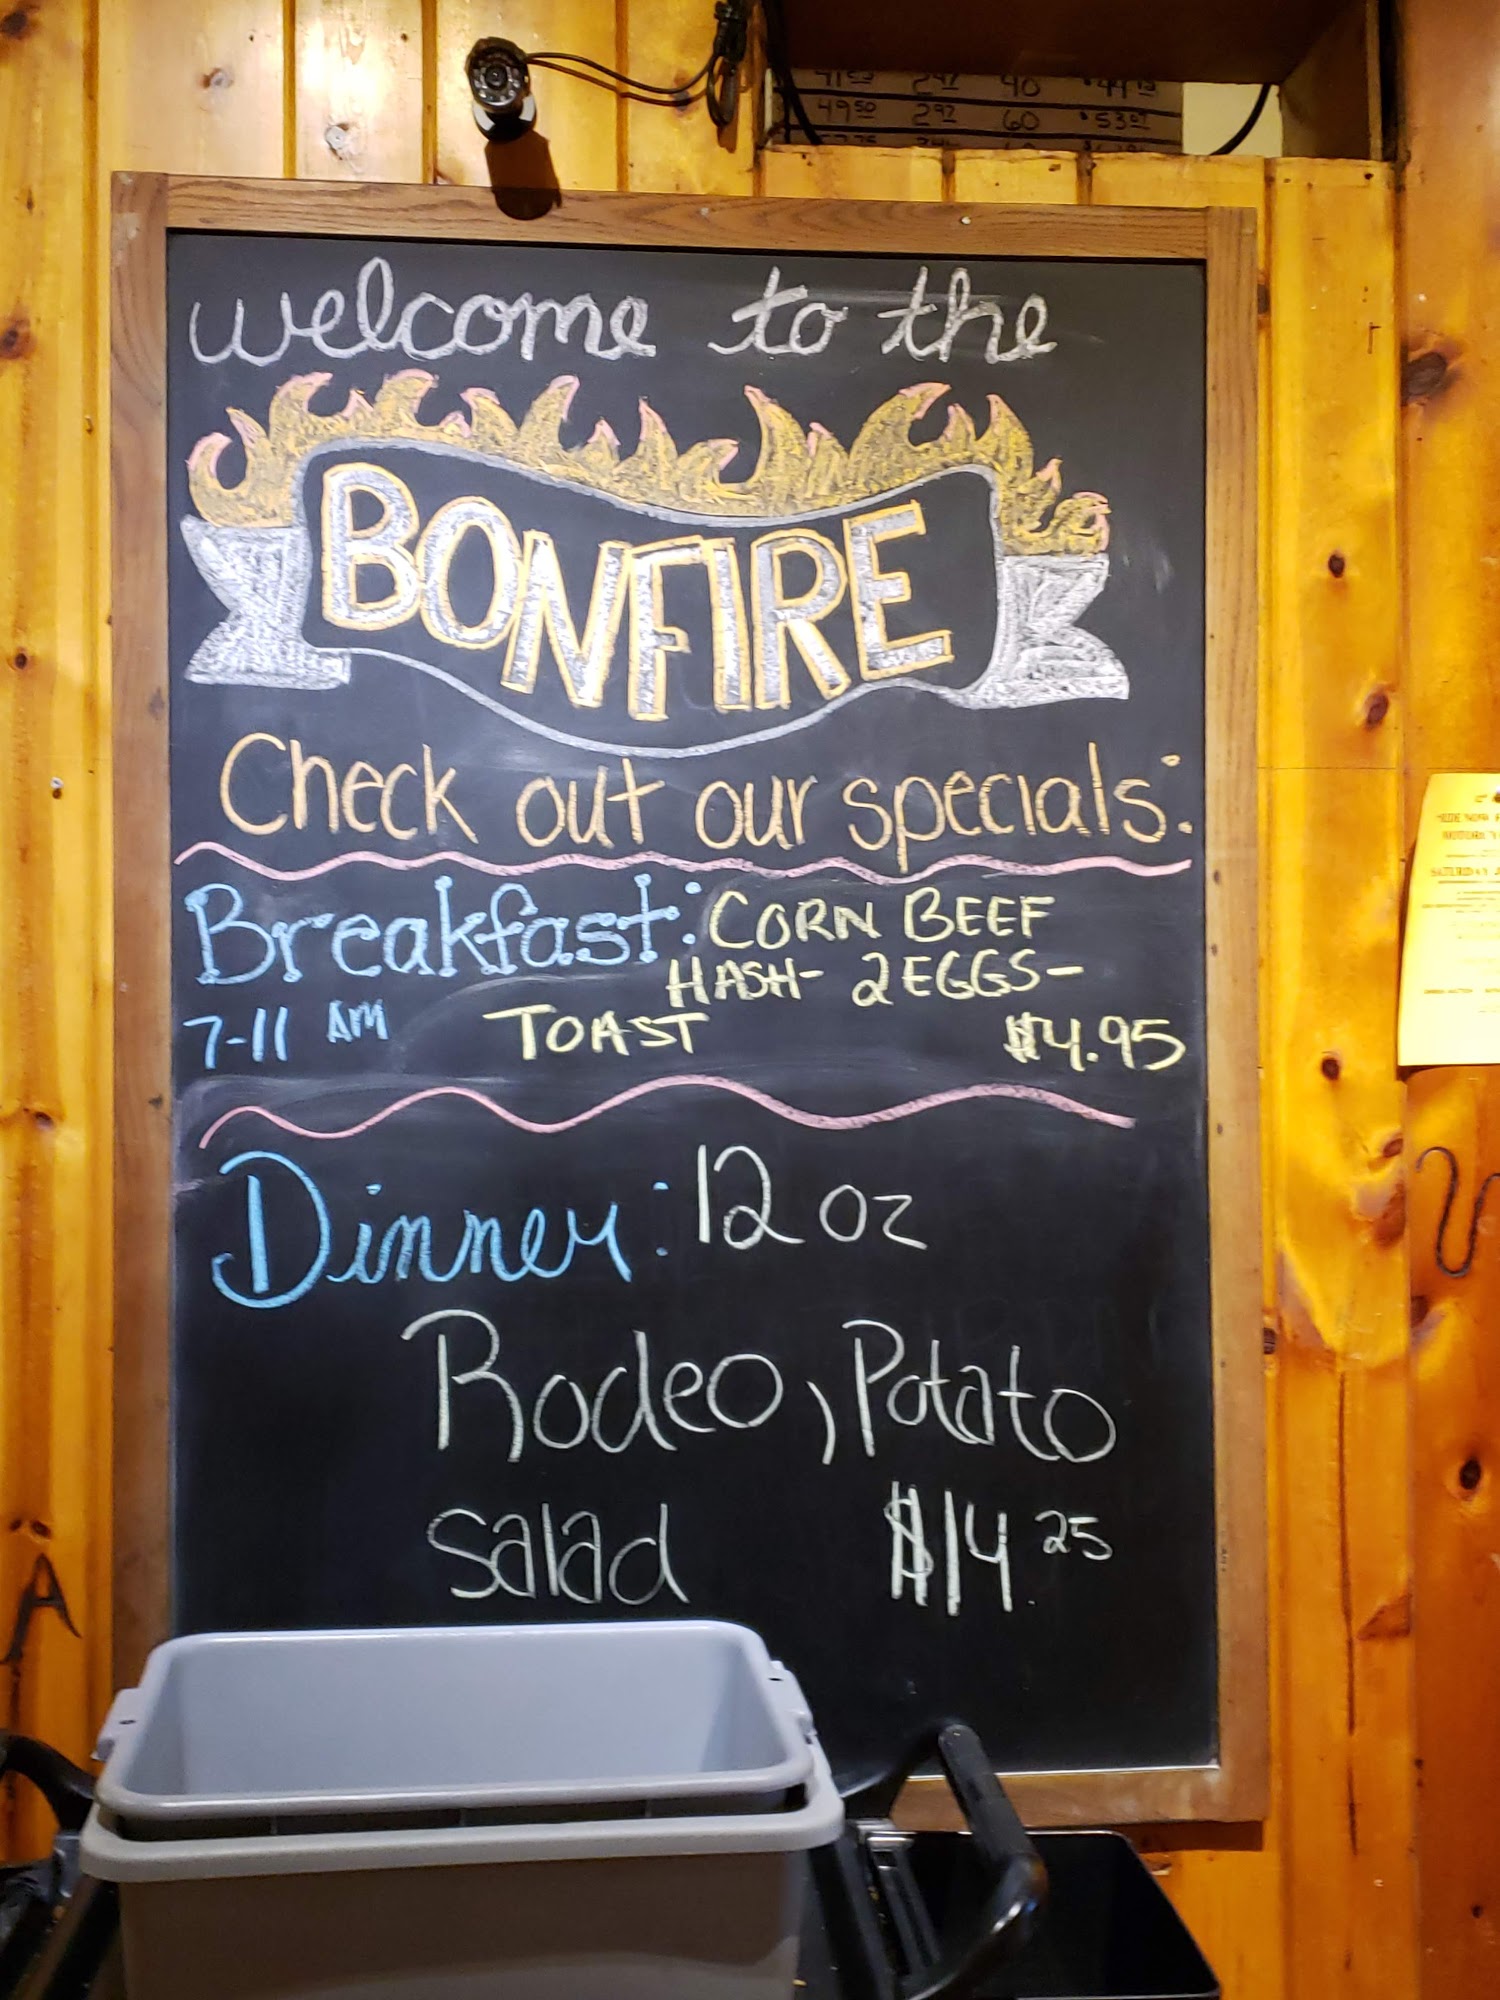 49.50 2.92 60 $53.07
welcome to the
BONFIRE
Check out our specials:
Breakfast: CORN BEEF
HASH- 2 EGGS-
7-11 AM TOAST $4.95
Dinner: 12 oz
Rodeo, Potato
salad $14.25
SATURDAY
A